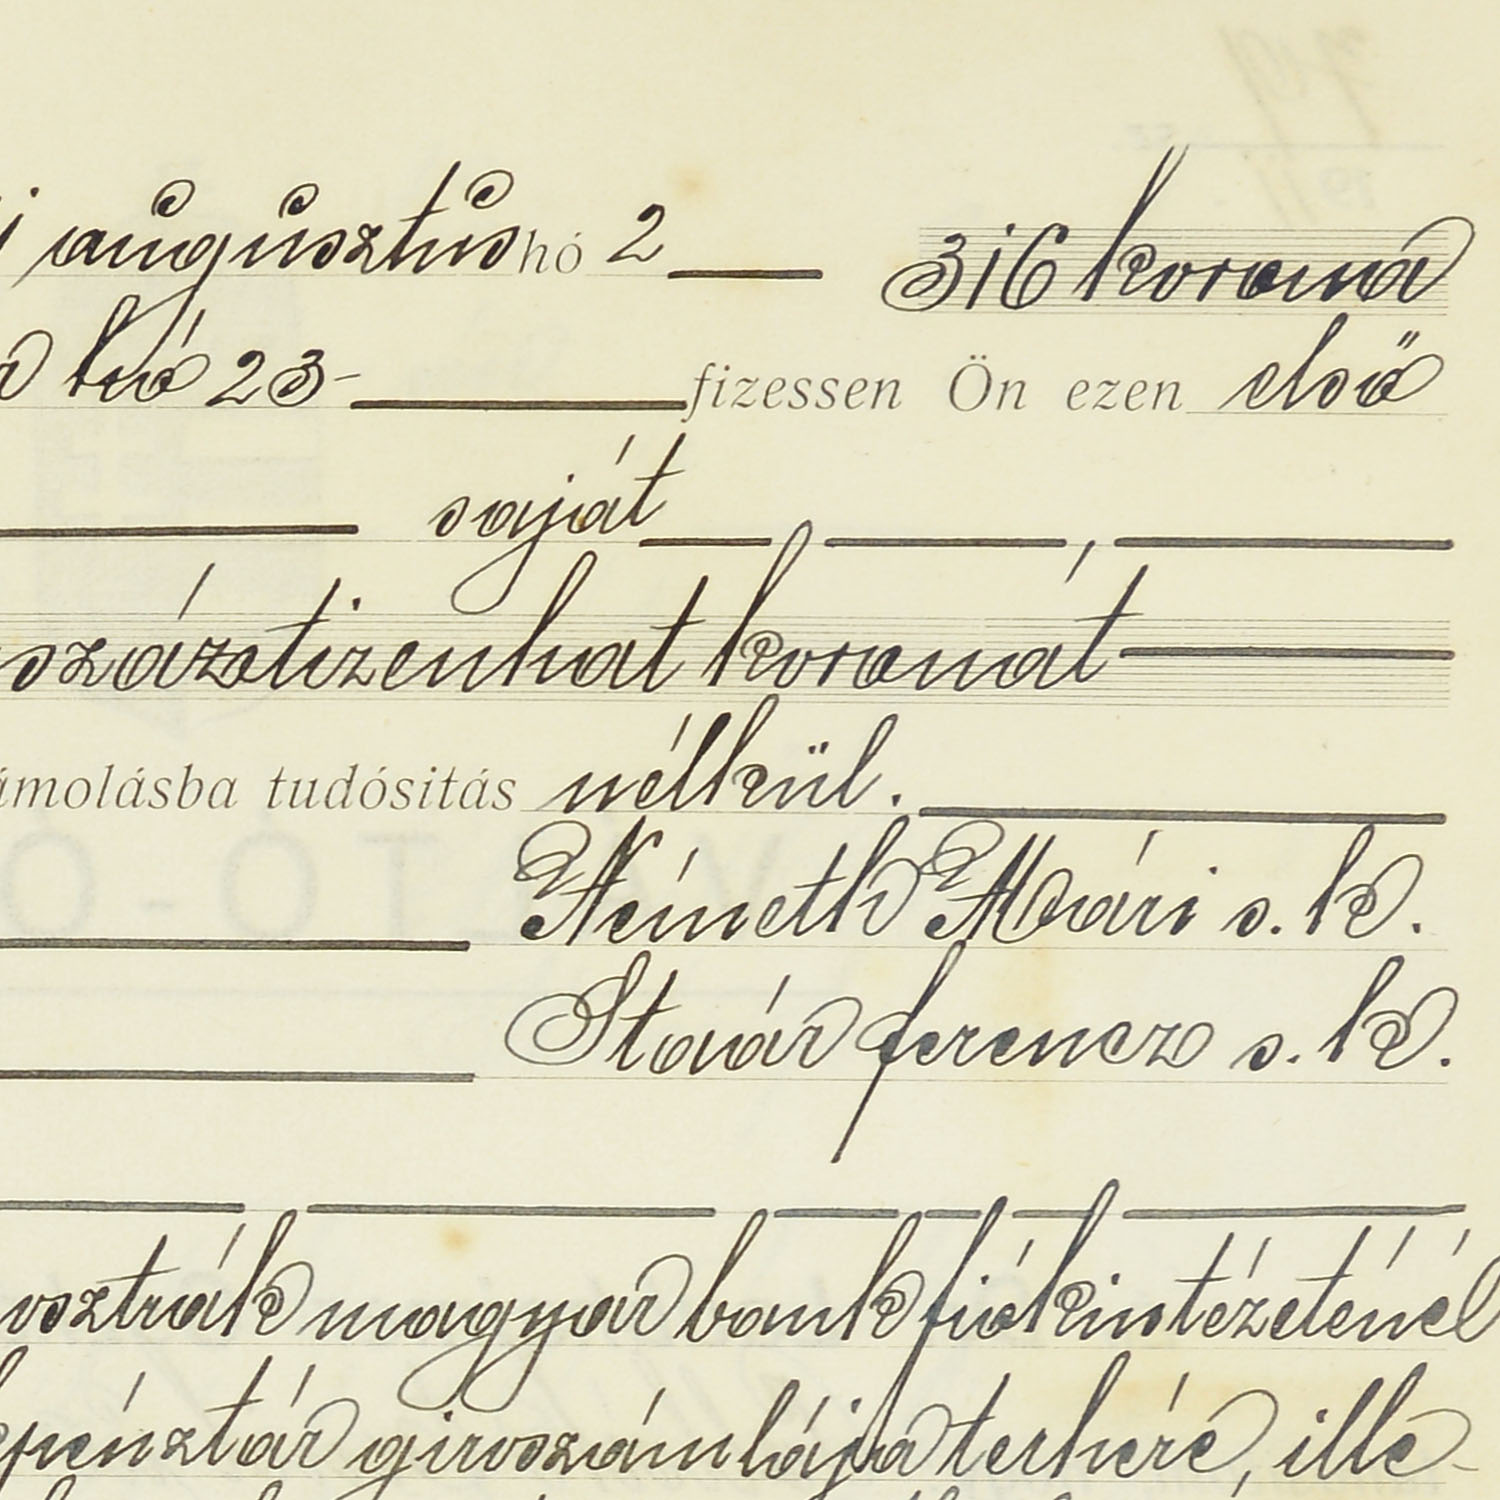 i augusztus hó 2 316 korona
hó 23- fizessen Ön ezen első
saját
százatizenhat koronát
ámolásba tudósitás nélkül.
Németh Mári s. k.
Stavár ferencz s. k.
osztrák magyar bank fiókintézeténél
epénztár giroszámlája terhére, ille-